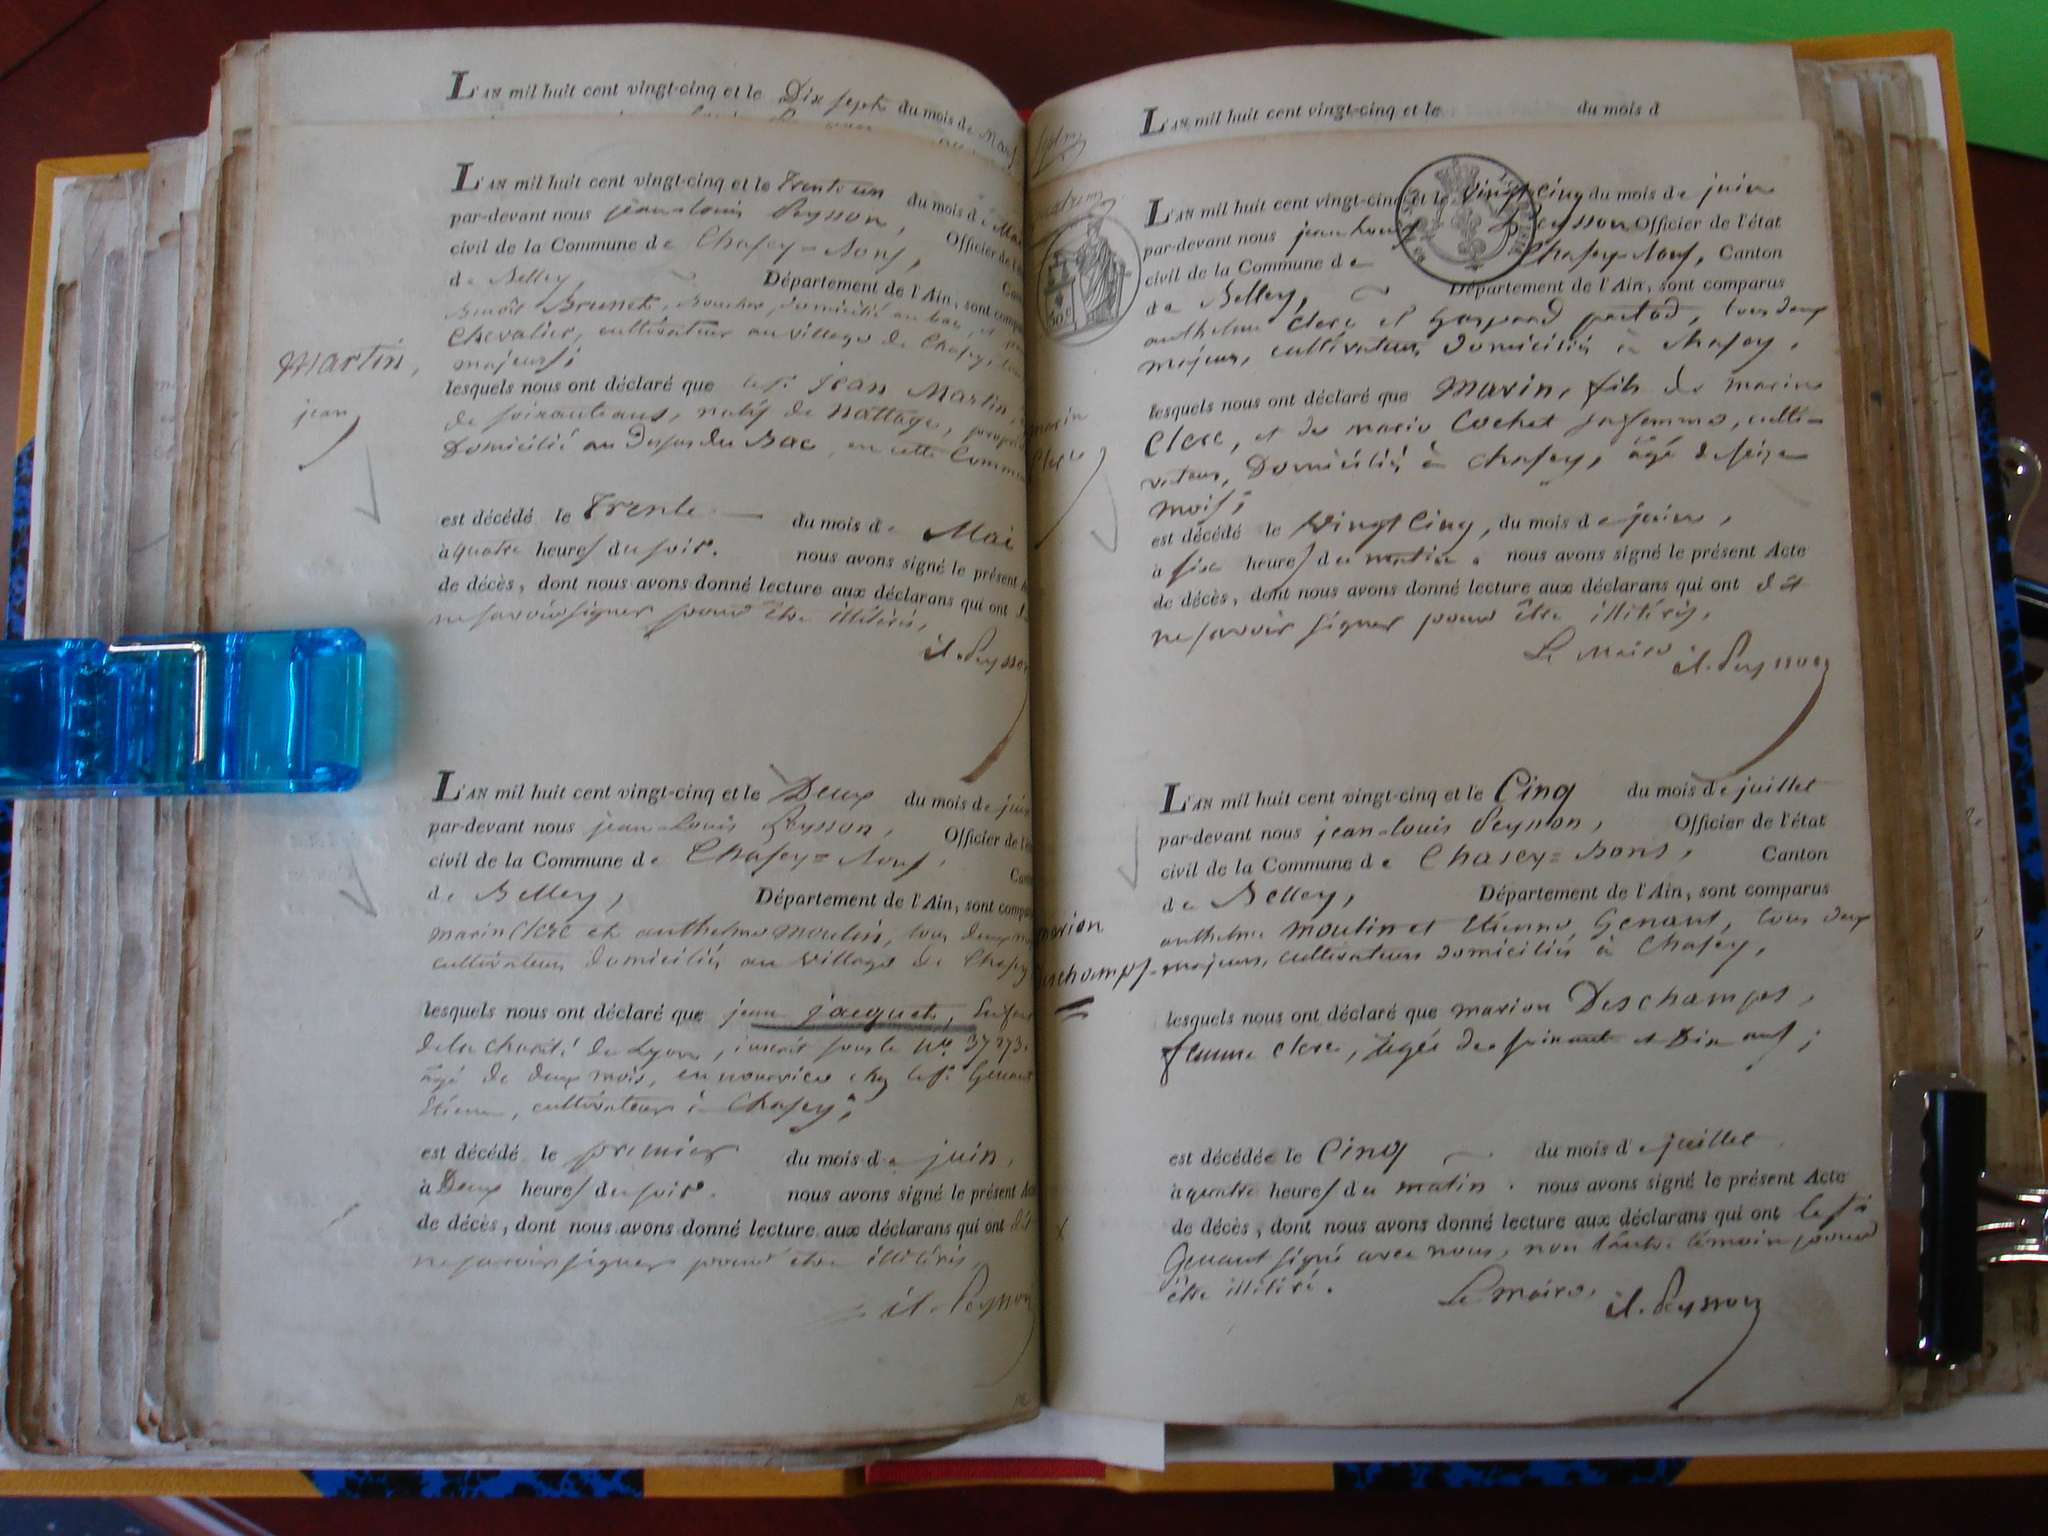 L'AN mil huit cent vingt-cinq et le Dix sept du mois de Mars
L'AN mil huit cent vingt-cinq et le Trente un du mois de Mai
par-devant nous jean-louis Peysson, Officier de l'é
civil de la Commune de Chasey=Bons,
de Belley, Département de l'Ain, sont compar
Benoît Brunet, domicilié au bac, et
Chevalier, cultivateur au village de Chasey,
majeurs;
Martin,
jean
lesquels nous ont déclaré que le sr. jean Martin
de soixante ans, natif de Nattage,
Domicilié au Dessus du Bac, en cette Commu
est décédé le Trente du mois de Mai
à quatre heures du soir. nous avons signé le présent
de décès, dont nous avons donné lecture aux déclarans qui ont
ne savoir signer pour être illitérés,
j.l. Peysson
L'AN mil huit cent vingt-cinq et le Deux du mois de juin
par-devant nous jean-Louis Peysson, Officier de l'é
civil de la Commune de Chasey=Bons, Can
de Belley, Département de l'Ain, sont compar
marin Clerc et anthelme moulin, tous deux
cultivateurs domiciliés au village de Chasey
lesquels nous ont déclaré que jean jacquet, Enfant
de la charité de Lyon, inscrit sous le No. 37273.
âgé de deux mois, en nourrice chez le sr. Genant
Etienne, cultivateur à Chasey;
est décédé le premier du mois de juin,
à Deux heures du soir. nous avons signé le présent Acte
de décès, dont nous avons donné lecture aux déclarans qui ont dit
ne savoir signer pour être illitérés,
j.l. Peysson
L'AN mil huit cent vingt-cinq et le du mois d
L'AN mil huit cent vingt-cinq et le vingt cinq du mois de juin
par-devant nous jean Louis Peysson Officier de l'état
civil de la Commune de Chasey=Bons, Canton
de Belley, Département de l'Ain, sont comparus
anthelme Clerc et Gaspard portod, tous deux
majeurs, cultivateurs domiciliés à chasey,
marin
Clerc
lesquels nous ont déclaré que Marin, fils de marin
Clerc, et de marie Cochet sa femme, culti-
vateurs, Domiciliés à Chasey, âgé de seize
mois;
est décédé le vingt Cinq, du mois de juin,
à six heures du matin. nous avons signé le présent Acte
de décès, dont nous avons donné lecture aux déclarans qui ont dit
ne savoir signer pour être illitérés,
Le Maire j.l. Peysson
L'AN mil huit cent vingt-cinq et le Cinq du mois de juillet
par-devant nous jean-louis Peysson, Officier de l'état
civil de la Commune de Chasey=Bons, Canton
de Belley, Département de l'Ain, sont comparus
marion
Deschamps
anthelme moulin et Etienne Genant, tous deux
majeurs, cultivateurs domiciliés à Chasey,
lesquels nous ont déclaré que marion Deschamps,
femme clerc, âgée de soixante et Dix neuf;
est décédée le Cinq du mois de juillet
à quatre heures du matin. nous avons signé le présent Acte
de décès, dont nous avons donné lecture aux déclarans qui ont le sr.
Genant signé avec nous, non l'autre témoin pour
être illitéré.
Le maire, j.l. Peysson